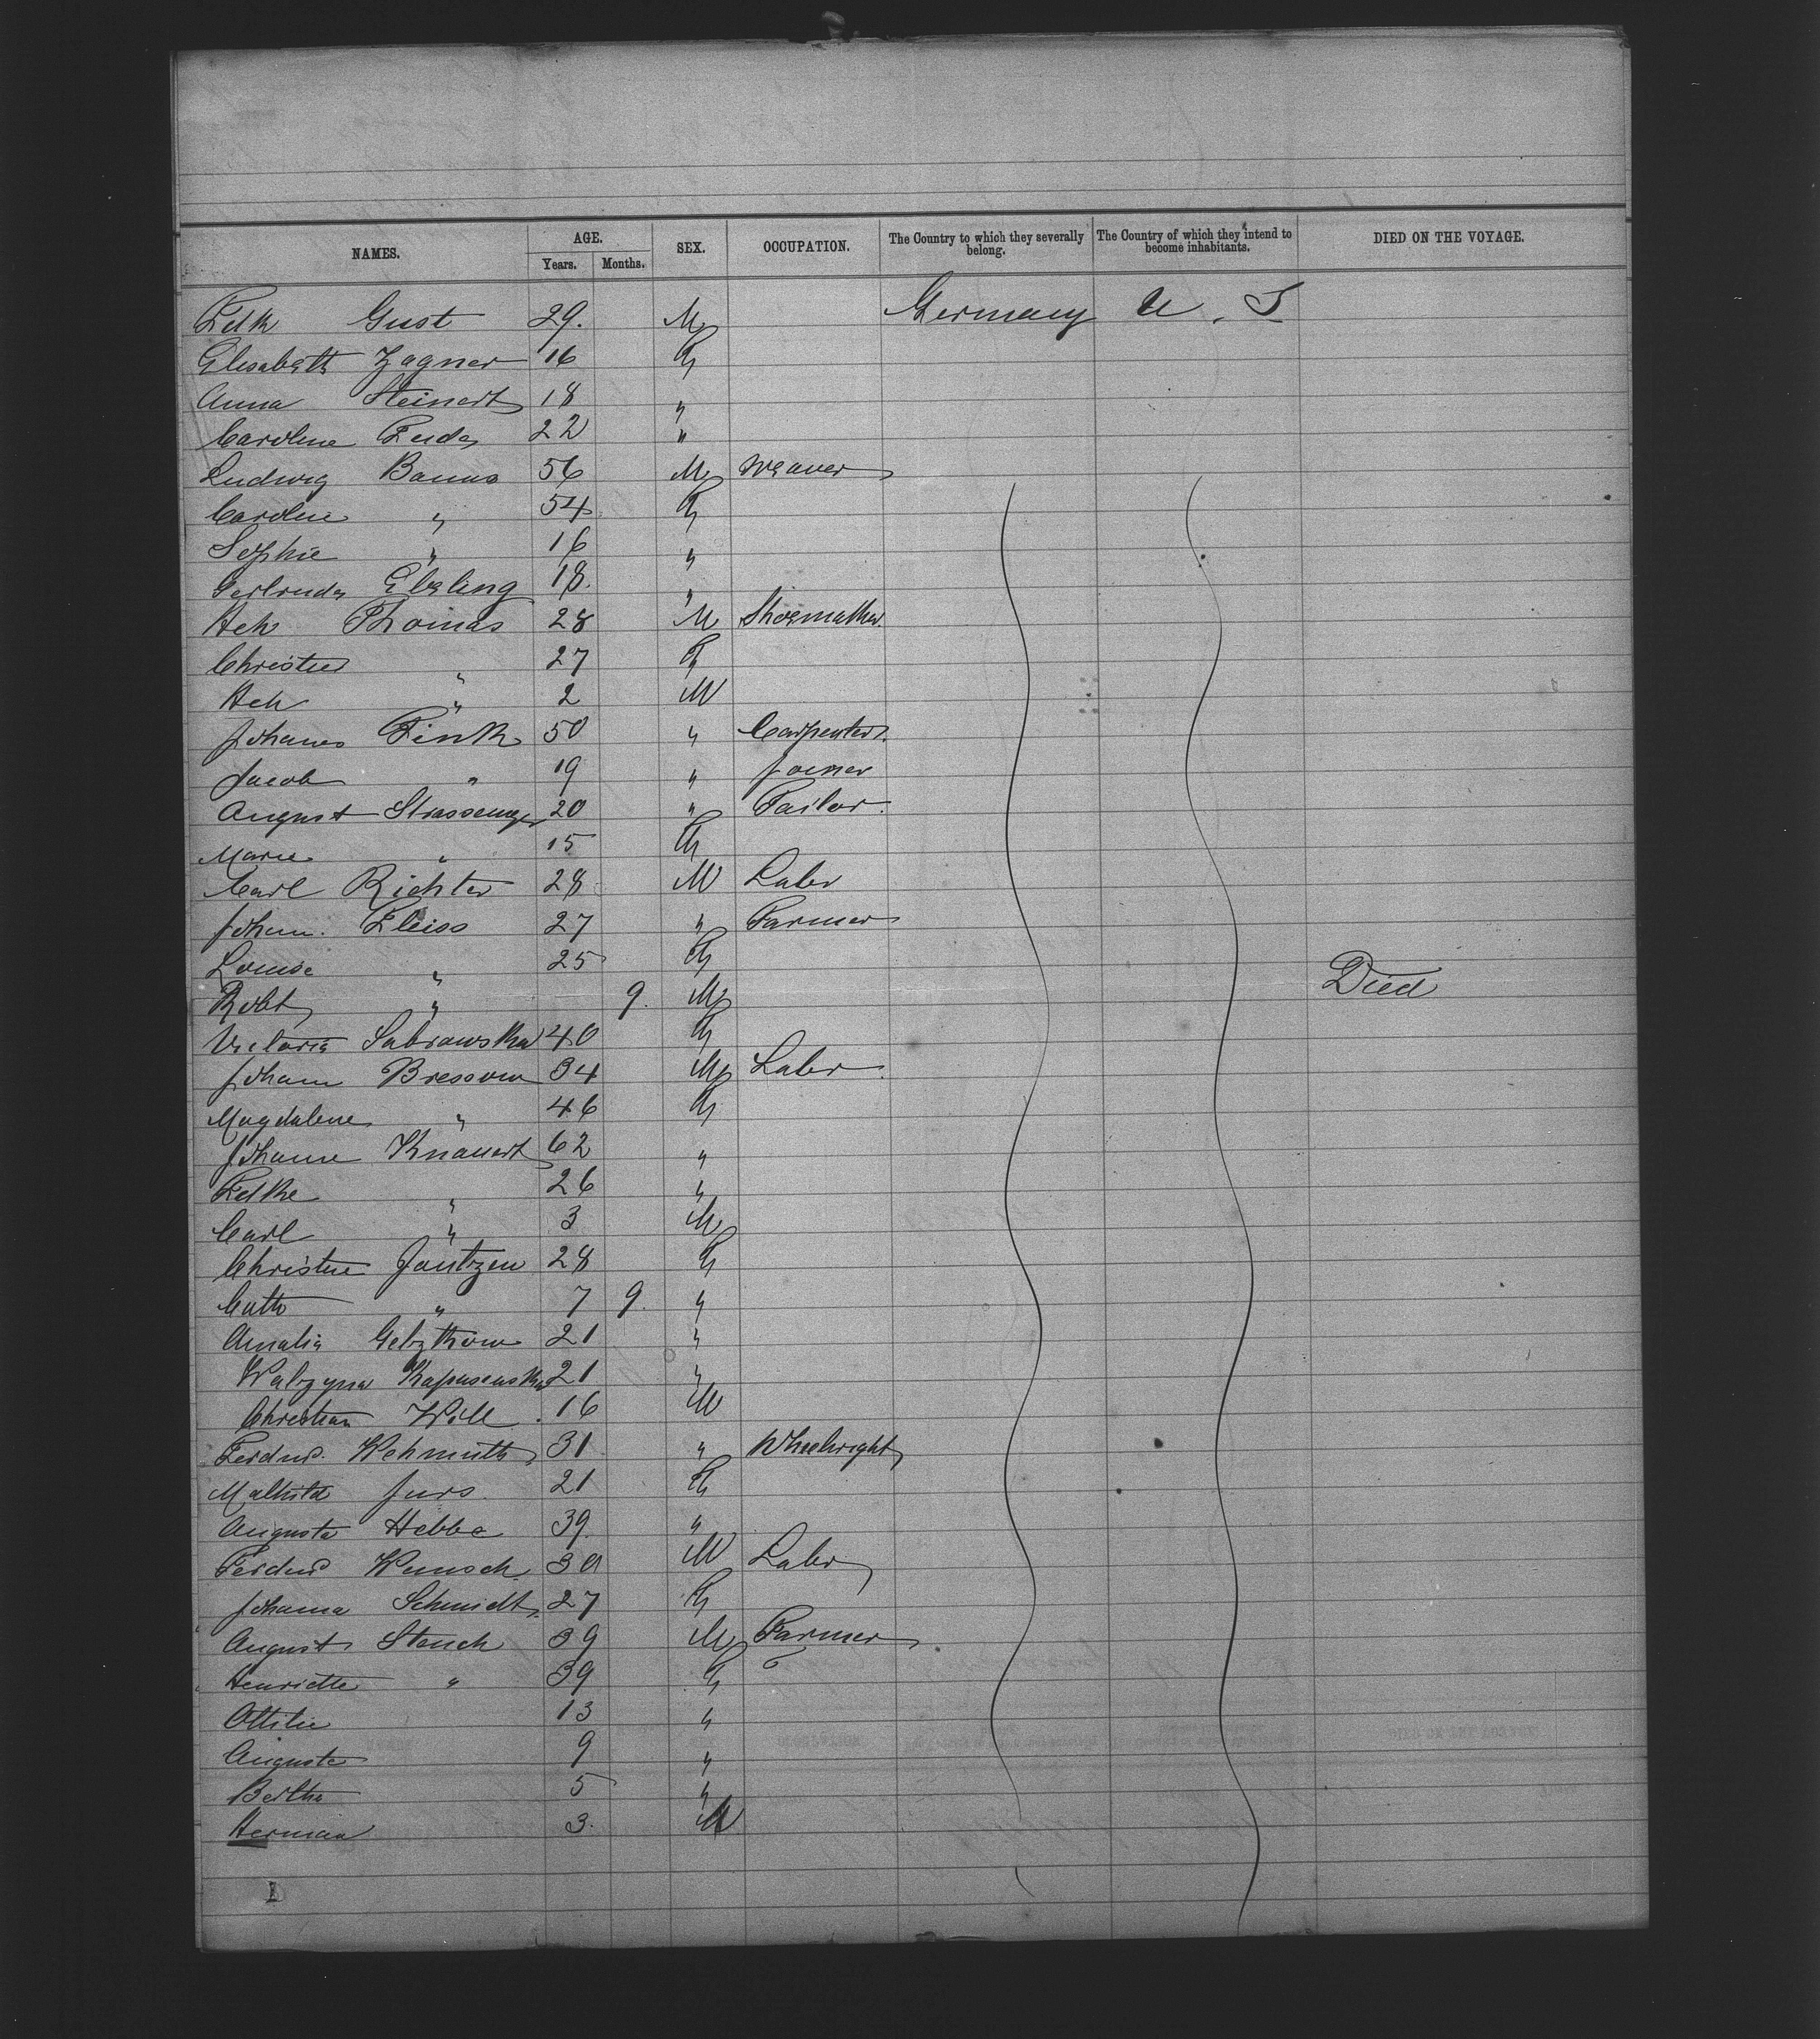 NAMES. AGE. Years. Months. SEX. OCCUPATION. The Country to which they severally belong. The Country of which they intend to become inhabitants. DIED ON THE VOYAGE.
Fdk Gust 29. M Germany U. S
Elisabeth Zagner 16 F
Anna Steinert 18 "
Caroline 22 "
Ludwig Bauus 56 M Weaver
Caroline " 54 F
Sophie " 16 "
Gertrude Ebeling 18. "
Hch Thomas 28 M Shoemaker.
Christine " 27 F
Hch " 2 M
Johanes Fink 50 " Carpenter.
Jacob " 19 " Joiner
August 20 " Tailor.
Marie " 15 F
Carl Richter 28. M Labr
Johann. Fleiss 27 " Farmer
Louise " 25 F
Robt " 9. M Died
Victoria Sabrowska 40 F
Johann Bressow 34 M Labr
Magdalene " 46 F
Johanne Knauert 62 "
Fdke " 26 "
Carl " 3 M
Christine Jantzen 28 F
Cath " 7 9. "
Amalia 21 "
Walzyna Kapusenska 21 "
Christian Will 16 M
Ferdind. Wehmuth 31 " Wheelwright
Mathild Jurs 21 F
Augusta Hebbe 39. "
Ferdind Wunsch 30 M Labr
Johanna Schmidt 27 F
August Stenck 39 M Farmer
Henriette " 39 F
Ottilie 13 "
Auguste 9 "
Bertha 5 "
Herman 3. M